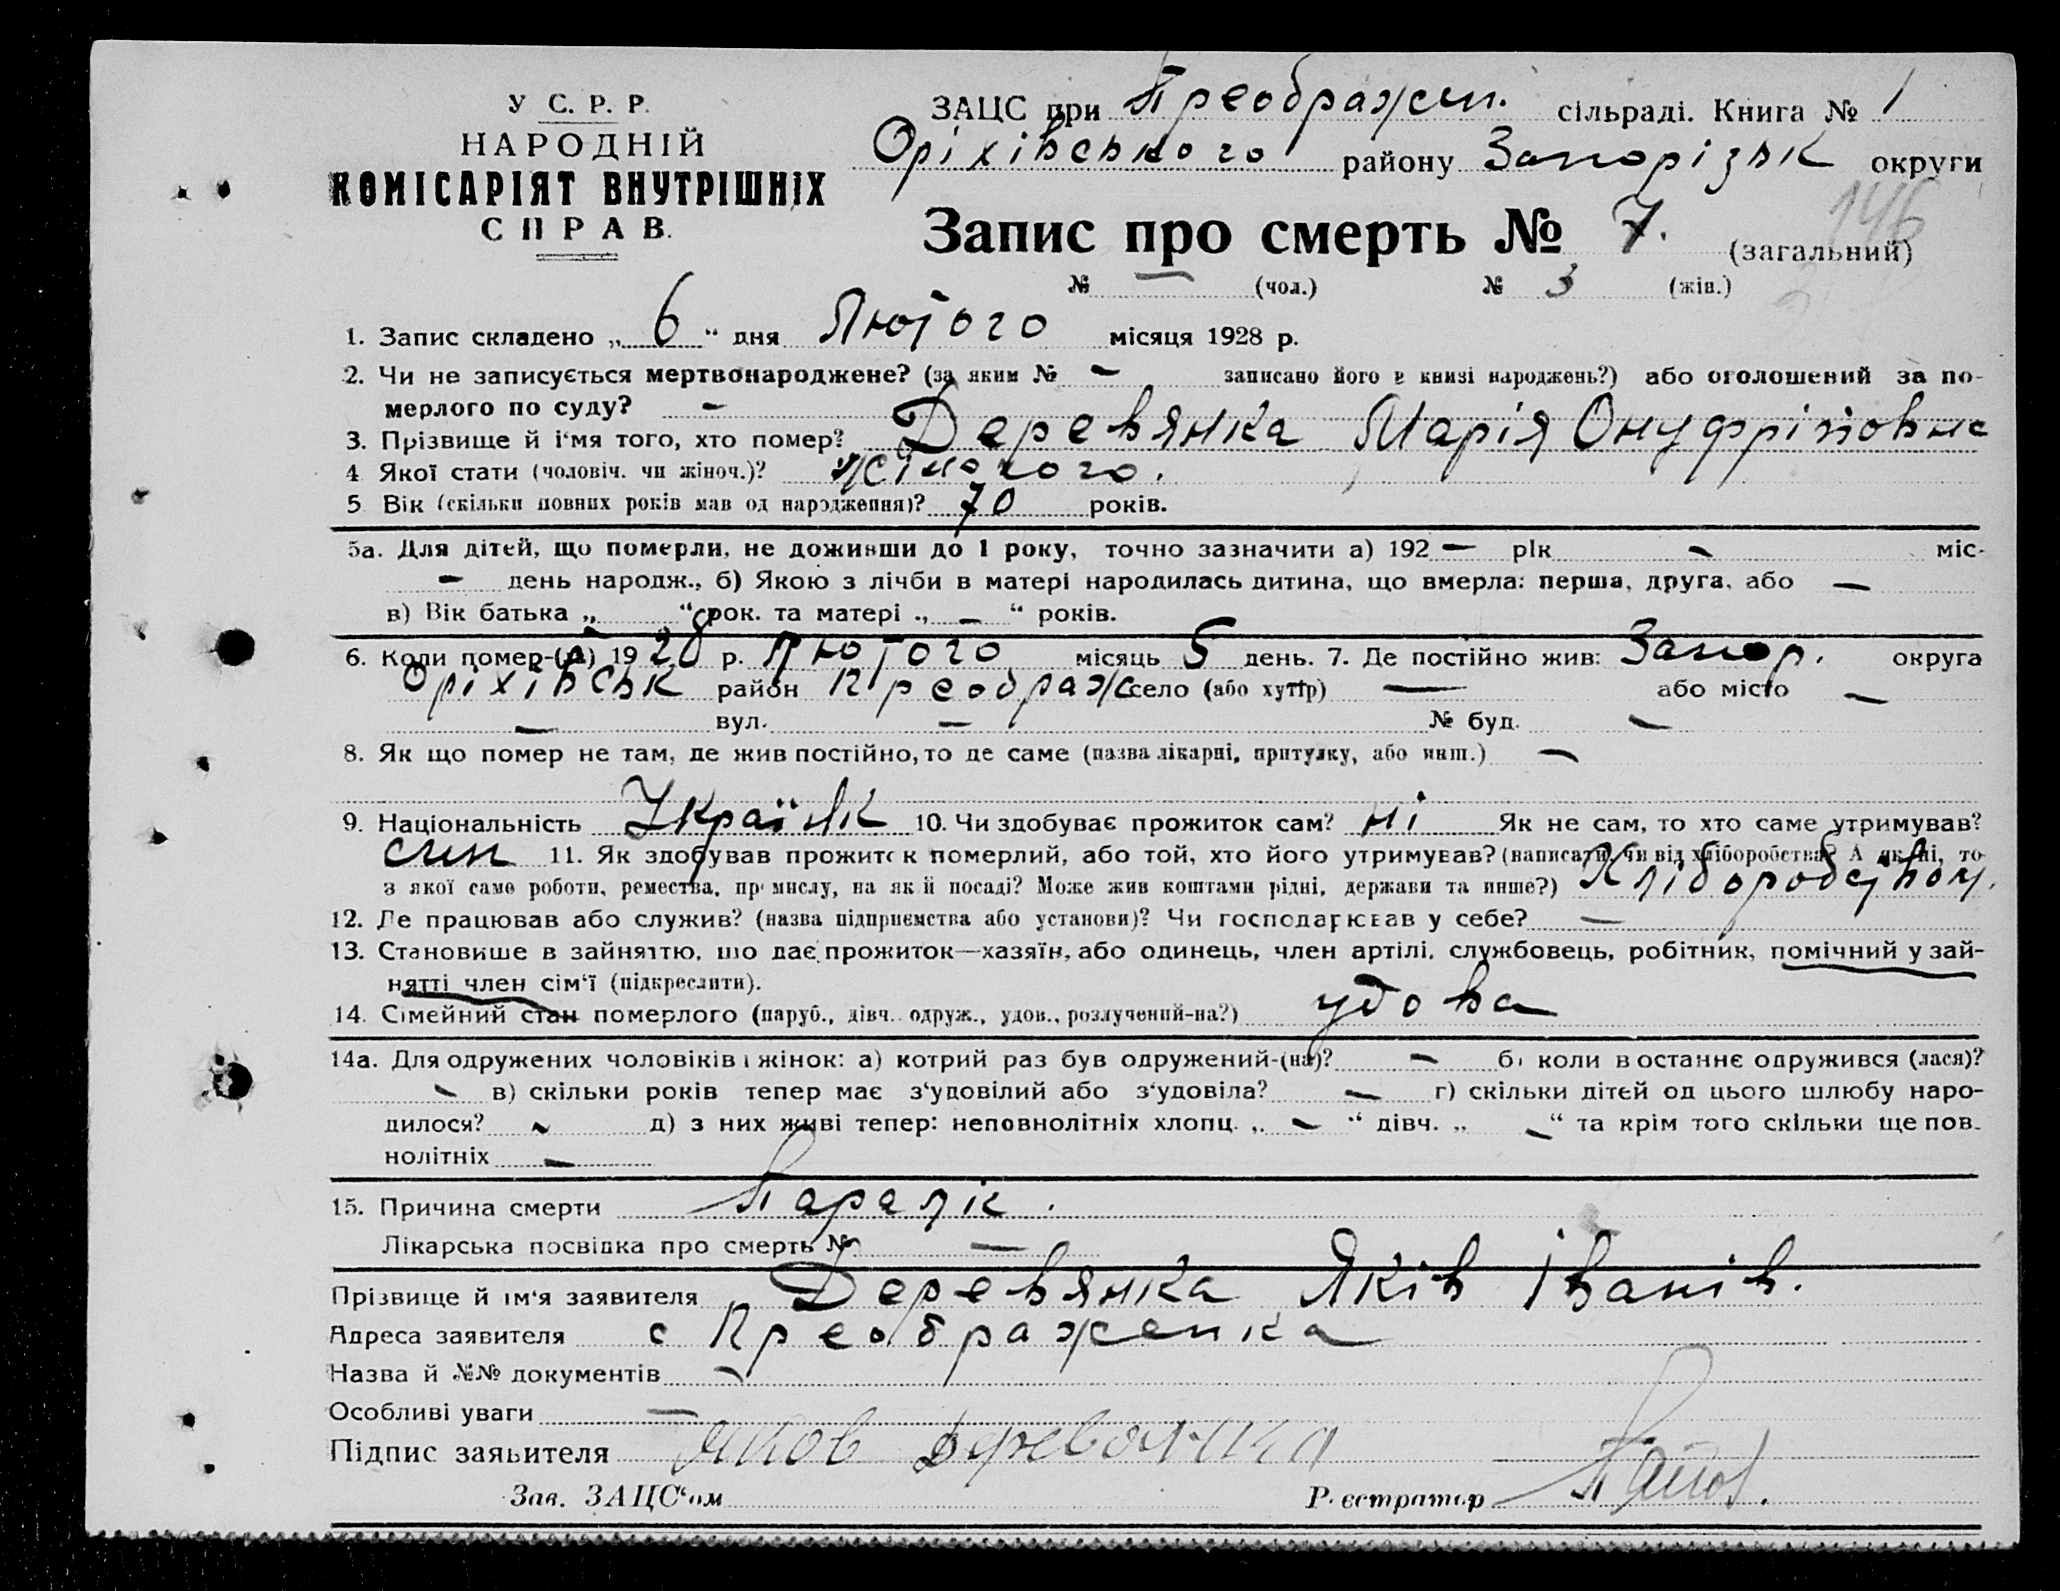 У С. Р. Р.
НАРОДНІЙ
КОМІСАРІЯТ ВНУТРІШНІХ
СПРАВ.
ЗАЦС при Преображен. сільраді. Книга № 1
Оріхівського району Запорізьк округи
146
Запис про смерть № 7. (загальний)
№ — (чол.) № 3 (жін.)
1. Запис складено „ 6 “ дня Лютого місяця 1928 р.
2. Чи не записується мертвонароджене? (за яким № — записано його в книзі народжень?) або оголошений за по-
мерлого по суду? —
3. Прізвище й ім'я того, хто помер? Деревянка Марія Онуфріївна
4 Якої стати (чоловіч. чи жіноч.)? жіночого.
5 Вік (скільки повних років мав од народження)? 70 років.
5а. Для дітей, що померли, не доживши до 1 року, точно зазначити а) 192 — рік — міс-
— день народж., б) Якою з лічби в матері народилась дитина, що вмерла: перша, друга, або —
в) Вік батька „ — “ рок. та матері „ — “ років.
6. Коли помер-(ла) 1928 р. Лютого місяць 5 день. 7. Де постійно жив: Запор. округа
Оріхівськ район Преображ село (або хутір) — або місто —
— вул. — № буд. —
8. Як що помер не там, де жив постійно, то де саме (назва лікарні, притулку, або инш.) —
9. Національність Україн 10. Чи здобуває прожиток сам? ні Як не сам, то хто саме утримував?
син 11. Як здобував прожиток померлий, або той, хто його утримував? (написати, чи від хліборобства? А як ні, то
з якої саме роботи, ремества, промислу, на якій посаді? Може жив коштами рідні, держави та инше?) Хліборобством.
12. Де працював або служив? (назва підприємства або установи)? Чи господарював у себе? —
13. Становище в зайняттю, що дає прожиток—хазяїн, або одинець, член артілі, службовець, робітник, помічний у зай-
нятті член сім'ї (підкреслити).
14. Сімейний стан померлого (паруб., дівч. одруж., удов., розлучений-на?) удова
14а. Для одружених чоловіків і жінок: а) котрий раз був одружений-(на)? — б) коли востаннє одружився (лася)?
— в) скільки років тепер має з'удовілий або з'удовіла? — г) скільки дітей од цього шлюбу наро-
дилося? — д) з них живі тепер: неповнолітніх хлопц. „ — “ дівч. „ — “ та крім того скільки ще пов-
нолітніх —
15. Причина смерти Параліс.
Лікарська посвідка про смерть № —
Прізвище й ім'я заявителя Деревянка Яків Іванів.
Адреса заявителя с Преображенка
Назва й №№ документів —
Особливі уваги —
Підпис заявителя Яков Деревянка
Зав. ЗАЦС'ом Реєстратор